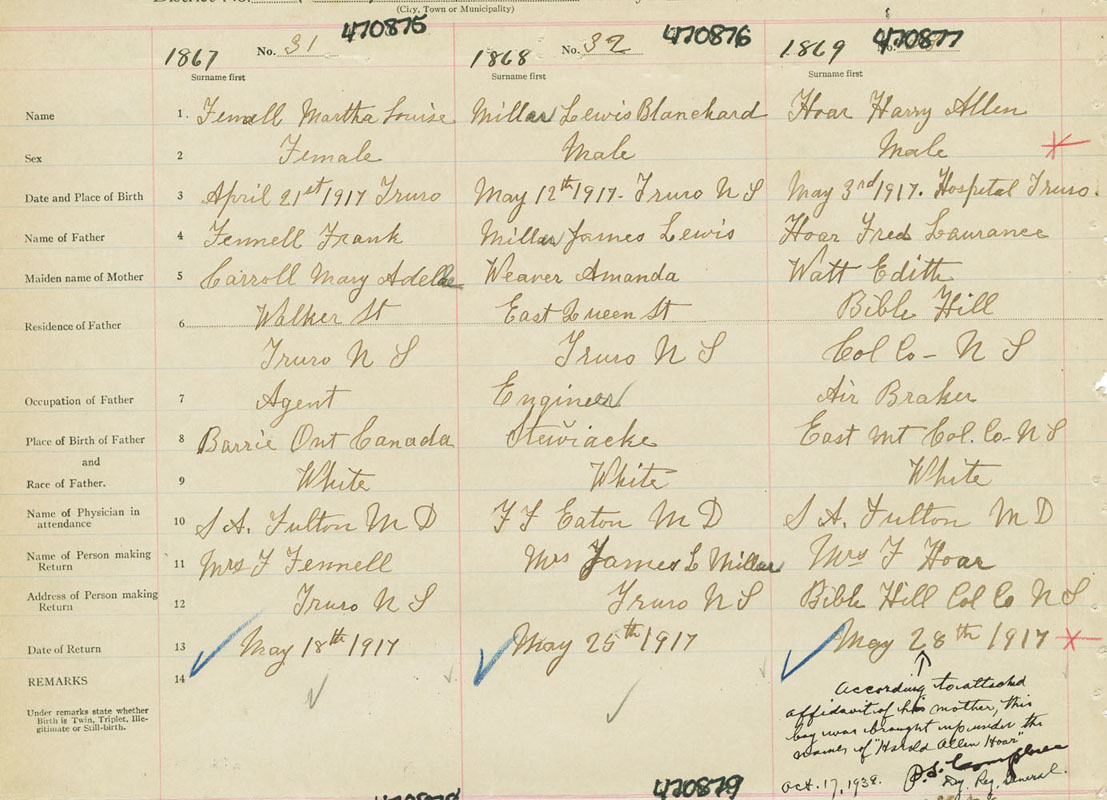 (City, Town or Municipality)
470875 470876 470877
1867 No. 31 1868 No. 32 1869 No.
Surname first Surname first Surname first
Name 1. Fennell Martha Louise Millar Lewis Blanchard Hoar Harry Allen
Sex 2 Female Male Male
Date and Place of Birth 3 April 21st 1917 Truro May 12th 1917. Truro N S May 3rd 1917. Hospital Truro.
Name of Father 4 Fennell Frank Millar James Lewis Hoar Fred Laurance
Maiden name of Mother 5 Carroll Mary Weaver Amanda Watt Edith
Residence of Father 6 Walker St East Queen St Bible Hill
Truro N S Truro N S Col Co - N S
Occupation of Father 7 Agent Engineer Air Braker
Place of Birth of Father 8 Barrie Ont Canada Stewiacke East Mt Col. Co - N S
and
Race of Father. 9 White White White
Name of Physician in attendance 10 S A. Fulton M D F F Eaton M D S A. Fulton M D
Name of Person making Return 11 Mrs F Fennell Mrs James L Millar Mrs F Hoar
Address of Person making Return 12 Truro N S Truro N S Bible Hill Col Co N S
Date of Return 13 May 18th 1917 May 25th 1917 May 28th 1917
REMARKS 14
Under remarks state whether
Birth is Twin, Triplet, Ille-
gitimate or Still-birth.
According to attached
affidavit of his mother, this
boy was brought up under the
names of "Harold Allen Hoar"
Oct. 17, 1938. Dy. Reg. General.
470879